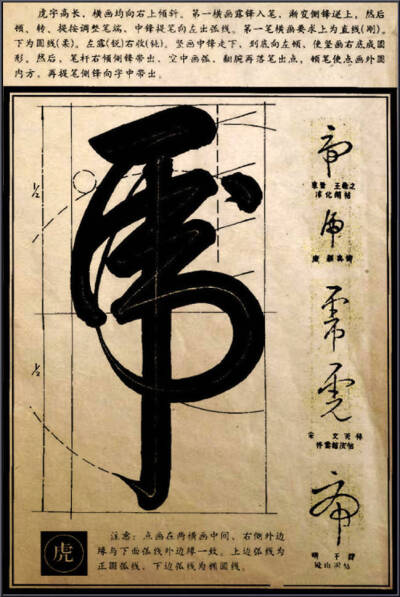 虎字高长，横画均向右上倾斜。第一横画露锋入笔，渐变侧锋逆上，然后
顿、转、提按调整笔端，中锋提笔向左出弧线。第一笔横画要求上为直线(刚)。
下为圆线(柔)。左露(锐)右收(钝)。竖画中锋走下，到底向左顿，使竖画右底成圆
形。然后，笔杆右倾侧锋带出、空中画弧、翻腕再落笔出点，顿笔使点画外圆
内方。再提笔侧锋向字中带出。
½
½
東晉 王羲之
淳化閣帖
唐 顏真卿
宋 文天祥
明
虎
注意：点画在两横画中间，右侧外边
缘与下面弧线外边缘一致。上边弧线为
正圆弧线，下边弧线为椭圆线。